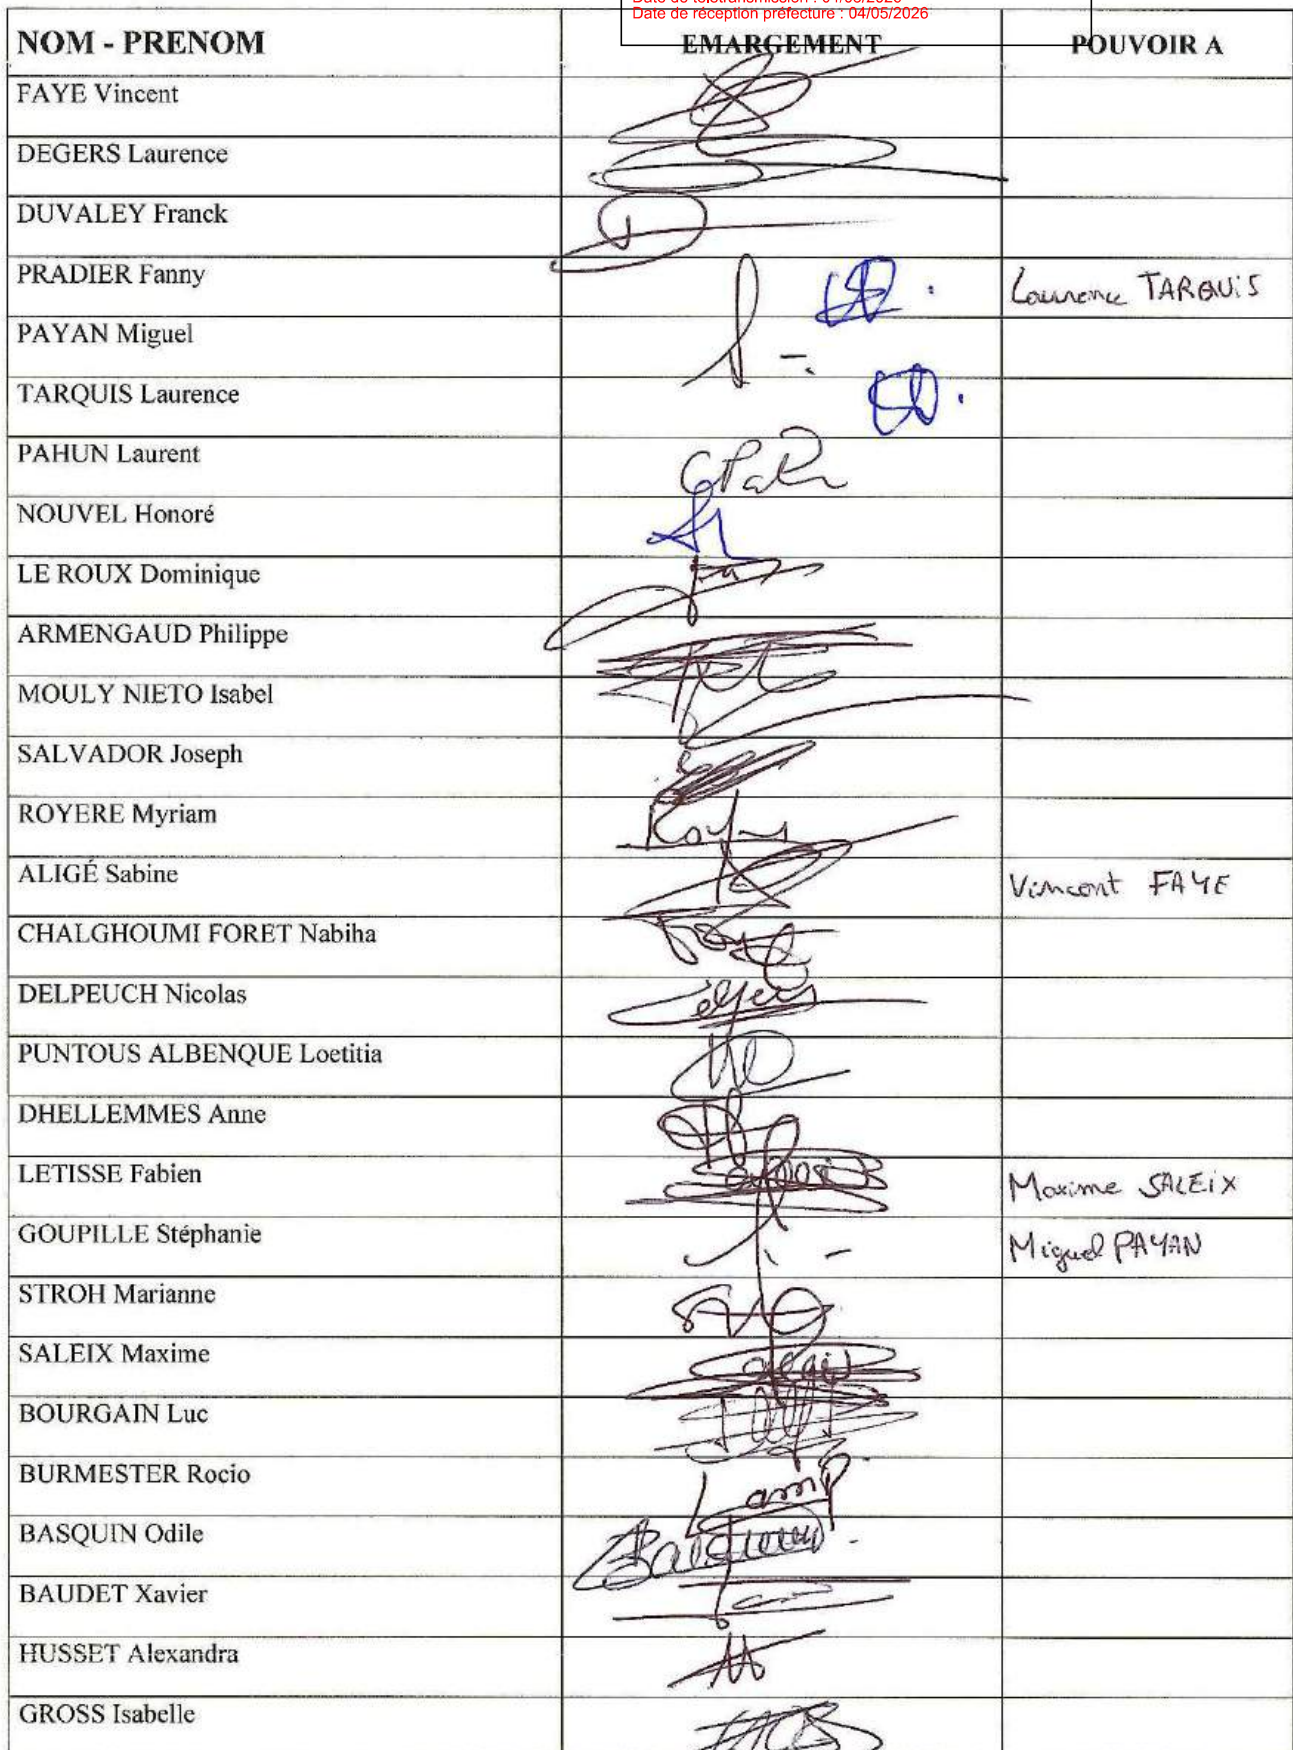 Date de réception préfecture : 04/05/2026
NOM - PRENOM EMARGEMENT POUVOIR A
FAYE Vincent
DEGERS Laurence
DUVALEY Franck
PRADIER Fanny Laurence TARQUIS
PAYAN Miguel
TARQUIS Laurence
PAHUN Laurent
NOUVEL Honoré
LE ROUX Dominique
ARMENGAUD Philippe
MOULY NIETO Isabel
SALVADOR Joseph
ROYERE Myriam
ALIGÉ Sabine Vincent FAYE
CHALGHOUMI FORET Nabiha
DELPEUCH Nicolas
PUNTOUS ALBENQUE Loetitia
DHELLEMMES Anne
LETISSE Fabien Maxime SALEIX
GOUPILLE Stéphanie Miguel PAYAN
STROH Marianne
SALEIX Maxime
BOURGAIN Luc
BURMESTER Rocio
BASQUIN Odile
BAUDET Xavier
HUSSET Alexandra
GROSS Isabelle